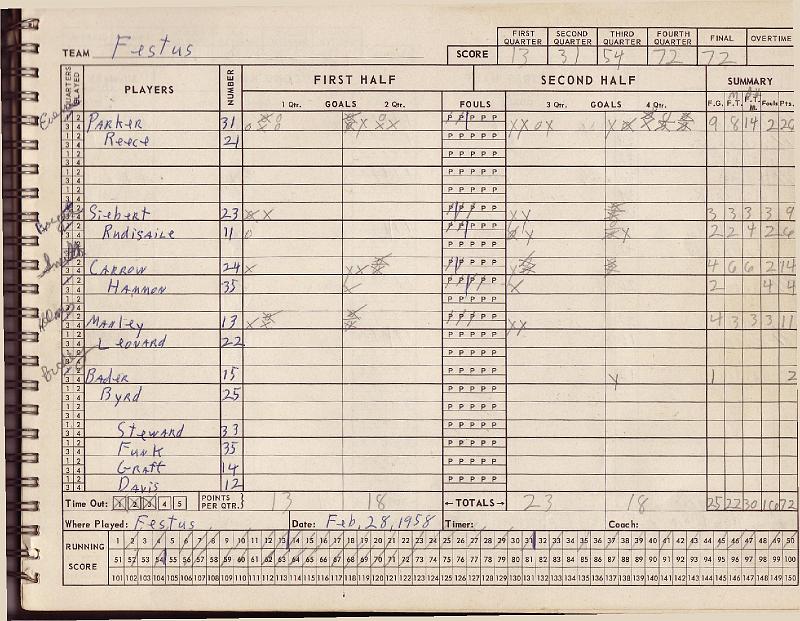 FIRST QUARTER SECOND QUARTER THIRD QUARTER FOURTH QUARTER FINAL OVERTIME
TEAM Festus SCORE 13 31 54 72 72
QUARTERS PLAYED PLAYERS NUMBER FIRST HALF SECOND HALF SUMMARY
1 Qtr. GOALS 2 Qtr. FOULS 3 Qtr. GOALS 4 Qtr. F.G. F.T. F.T. M. Fouls Pts.
PARKER 31 P P P P P 9 8 14 2 26
Reece 21 P P P P P
P P P P P
P P P P P
P P P P P
Siebert 23 P P P P P 3 3 3 3 9
Rudisaile 11 P P P P P 2 2 4 2 6
P P P P P
CARROW 24 P P P P P 4 6 6 2 14
HAMMON 35 P P P P P 2 4 4
P P P P P
MANley 13 P P P P P 4 3 3 3 11
LeoNARD 22 P P P P P
P P P P P
BADer 15 P P P P P 1 2
Byrd 25 P P P P P
P P P P P
STewARD 33 P P P P P
FUNK 35 P P P P P
GRAFF 14 P P P P P
DAVIS 12 P P P P P
Time Out: 1 2 3 4 5 POINTS PER QTR. 13 18 ←TOTALS→ 23 18 25 22 30 16 72
Where Played: Festus Date: Feb, 28, 1958 Timer: Coach:
RUNNING SCORE
1 2 3 4 5 6 7 8 9 10 11 12 13 14 15 16 17 18 19 20 21 22 23 24 25 26 27 28 29 30 31 32 33 34 35 36 37 38 39 40 41 42 43 44 45 46 47 48 49 50
51 52 53 54 55 56 57 58 59 60 61 62 63 64 65 66 67 68 69 70 71 72 73 74 75 76 77 78 79 80 81 82 83 84 85 86 87 88 89 90 91 92 93 94 95 96 97 98 99 100
101 102 103 104 105 106 107 108 109 110 111 112 113 114 115 116 117 118 119 120 121 122 123 124 125 126 127 128 129 130 131 132 133 134 135 136 137 138 139 140 141 142 143 144 145 146 147 148 149 150